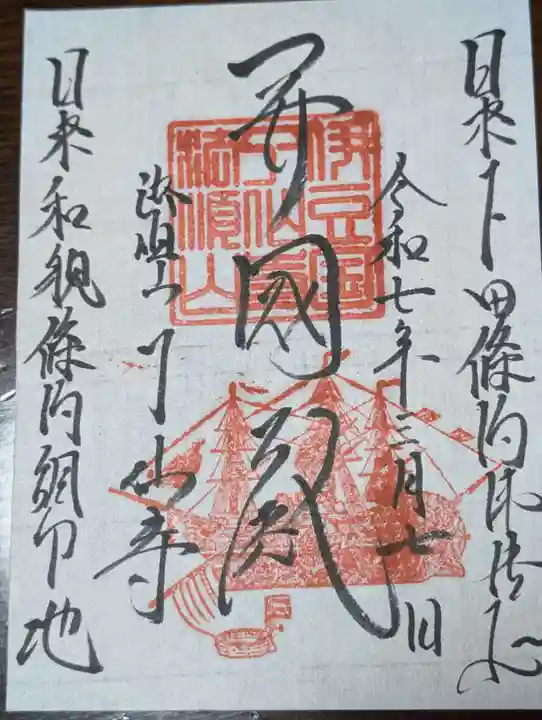 日米下田條約
令和七年三月七日
伊豆国
法順山
開國
法順山 了仙寺
日米和親條約調印地